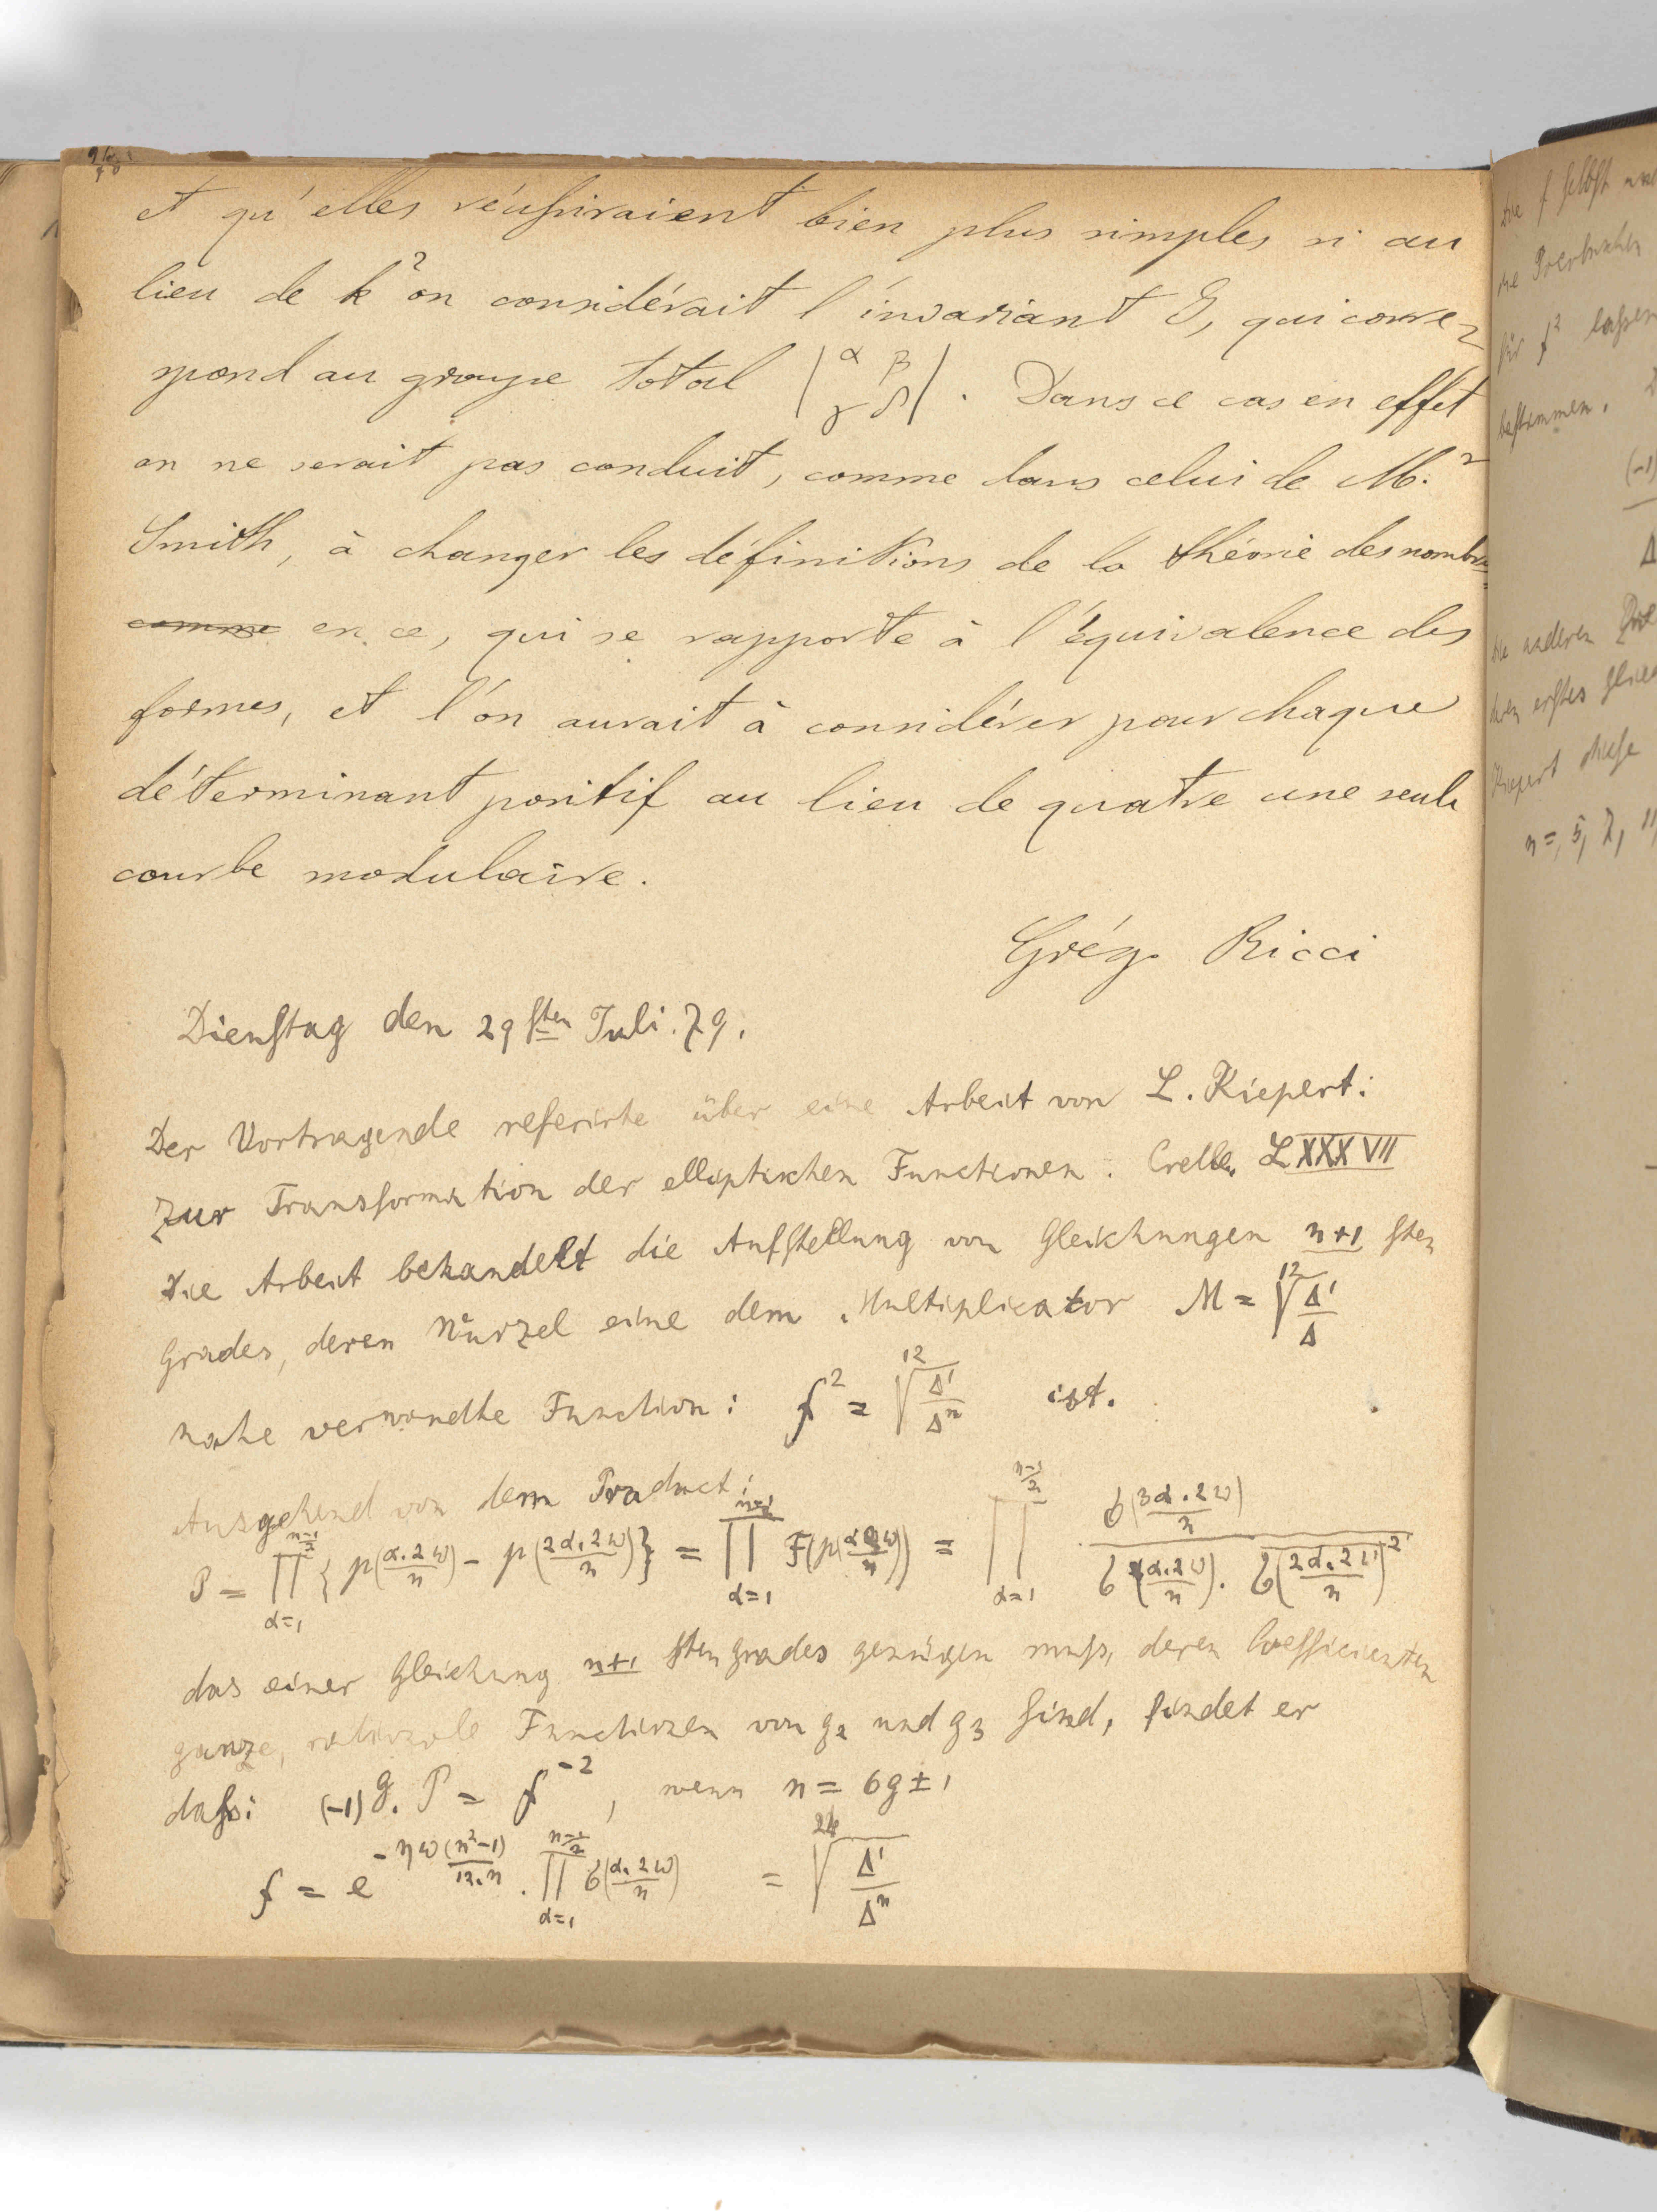 et qu'elles réussiraient bien plus simples si au
lieu de k² on considérait l'invariant J, qui corre-
spond au groupe total |α β γ δ|. Dans ce cas en effet
on ne serait pas conduit, comme dans celui de M.r
Smith, à changer les définitions de la théorie des nombres
comme en ce, qui se rapporte à l'équivalence des
formes, et l'on aurait à considérer pour chaque
déterminant positif au lieu de quatre une seule
courbe modulaire.
Grég. Ricci
Dienstag den 29sten Juli. 79.
Der Vortragende referirte über eine Arbeit von L. Kiepert:
Zur Transformation der elliptischen Functionen. Crelle, LXXXVII
Die Arbeit behandelt die Aufstellung von Gleichungen n+1 sten
Grades, deren Wurzel eine dem Multiplicator M = \sqrt[12]{\frac{Δ'}{Δ}}
nahe verwandte Function: f² = \sqrt[12]{\frac{Δ'}{Δ^n}} ist.
Ausgehend von dem Product:
P = \prod_{α=1}^{\frac{n-1}{2}} { p(\frac{α.2ω}{n}) - p(\frac{2α.2ω}{n}) } = \prod_{α=1}^{\frac{n-1}{2}} F(p(\frac{α2ω}{n})) = \prod_{α=1}^{\frac{n-1}{2}} \frac{σ(\frac{3α.2ω}{n})}{σ(\frac{α.2ω}{n}). σ(\frac{2α.2ω}{n})^2}
das einer Gleichung n+1 sten Grades genügen muss, deren Coefficienten
ganze, rationale Functionen von g₂ und g₃ sind, findet er
dass: (-1)^g. P = f^{-2}, wenn n = 6g ± 1
f = e^{-ηω\frac{(n²-1)}{12.n}} . \prod_{α=1}^{\frac{n-1}{2}} σ(\frac{α.2ω}{n}) = \sqrt[24]{\frac{Δ'}{Δ^n}}
Die f selbst
die
für f² lassen
bestimmen.
(-1)
Δ
die anderen
deren erstes Glied
Kiepert diese
n = 5, 7, 11,